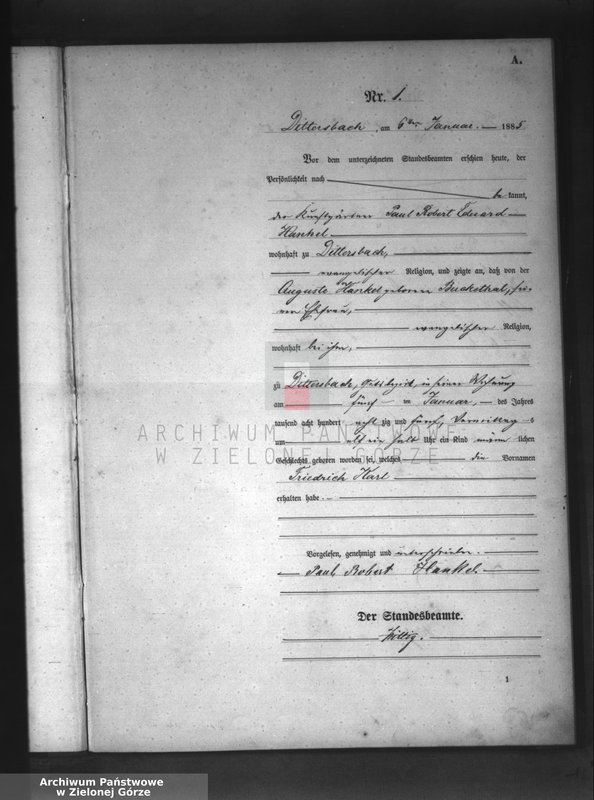 A.
Nr. 1.
Dittersbach, am 6ten Januar. 1885
Vor dem unterzeichneten Standesbeamten erschien heute, der
Persönlichkeit nach
bekannt,
der Kunstgärtner Paul Robert Eduard
Hankel
wohnhaft zu Dittersbach,
evangelischer Religion, und zeigte an, daß von der
Auguste Hankel geborenen Buckethal, sei-
ner Ehefrau,
evangelischer Religion,
wohnhaft bei ihm,
zu Dittersbach, Gutsbezirk, in seiner Wohnung
am fünf ten Januar, des Jahres
tausend acht hundert acht zig und fünf, Vormittag s
um
elf ein halb Uhr ein Kind männ lichen
Geschlechts geboren worden sei, welches die Vornamen
Friedrich Karl
erhalten habe.
Vorgelesen, genehmigt und unterschrieben.
Paul Robert Hankel.
Der Standesbeamte.
1
ARCHIWUM PAŃSTWOWE
W ZIELONEJ GÓRZE
Archiwum Państwowe
w Zielonej Górze